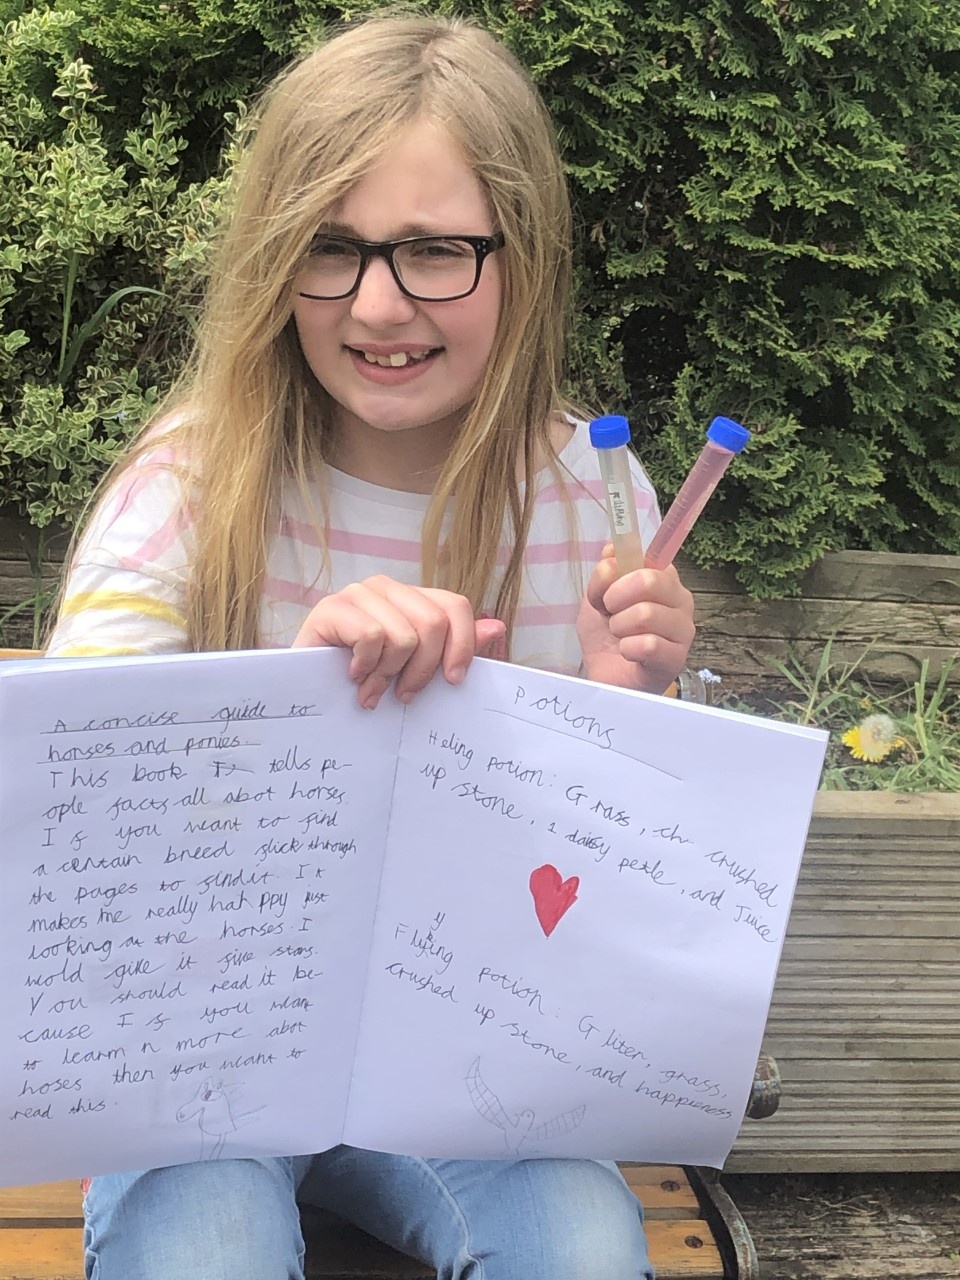 A concise guide to
horses and ponies.
This book tells pe-
ople facts all abot horses.
If you want to find
a certain breed flick through
the pages to find it. It
makes me really hah ppy just
looking at the horses. I
wold give it five stars.
You should read it be-
cause If you want
to learn n more abot
hoses then you want to
read this.
Potions
Heling potion: Grass, ch crushed
up stone, 1 daisy petle, and Juice
y
Flying potion: Gliter, grass,
crushed up stone, and happieness